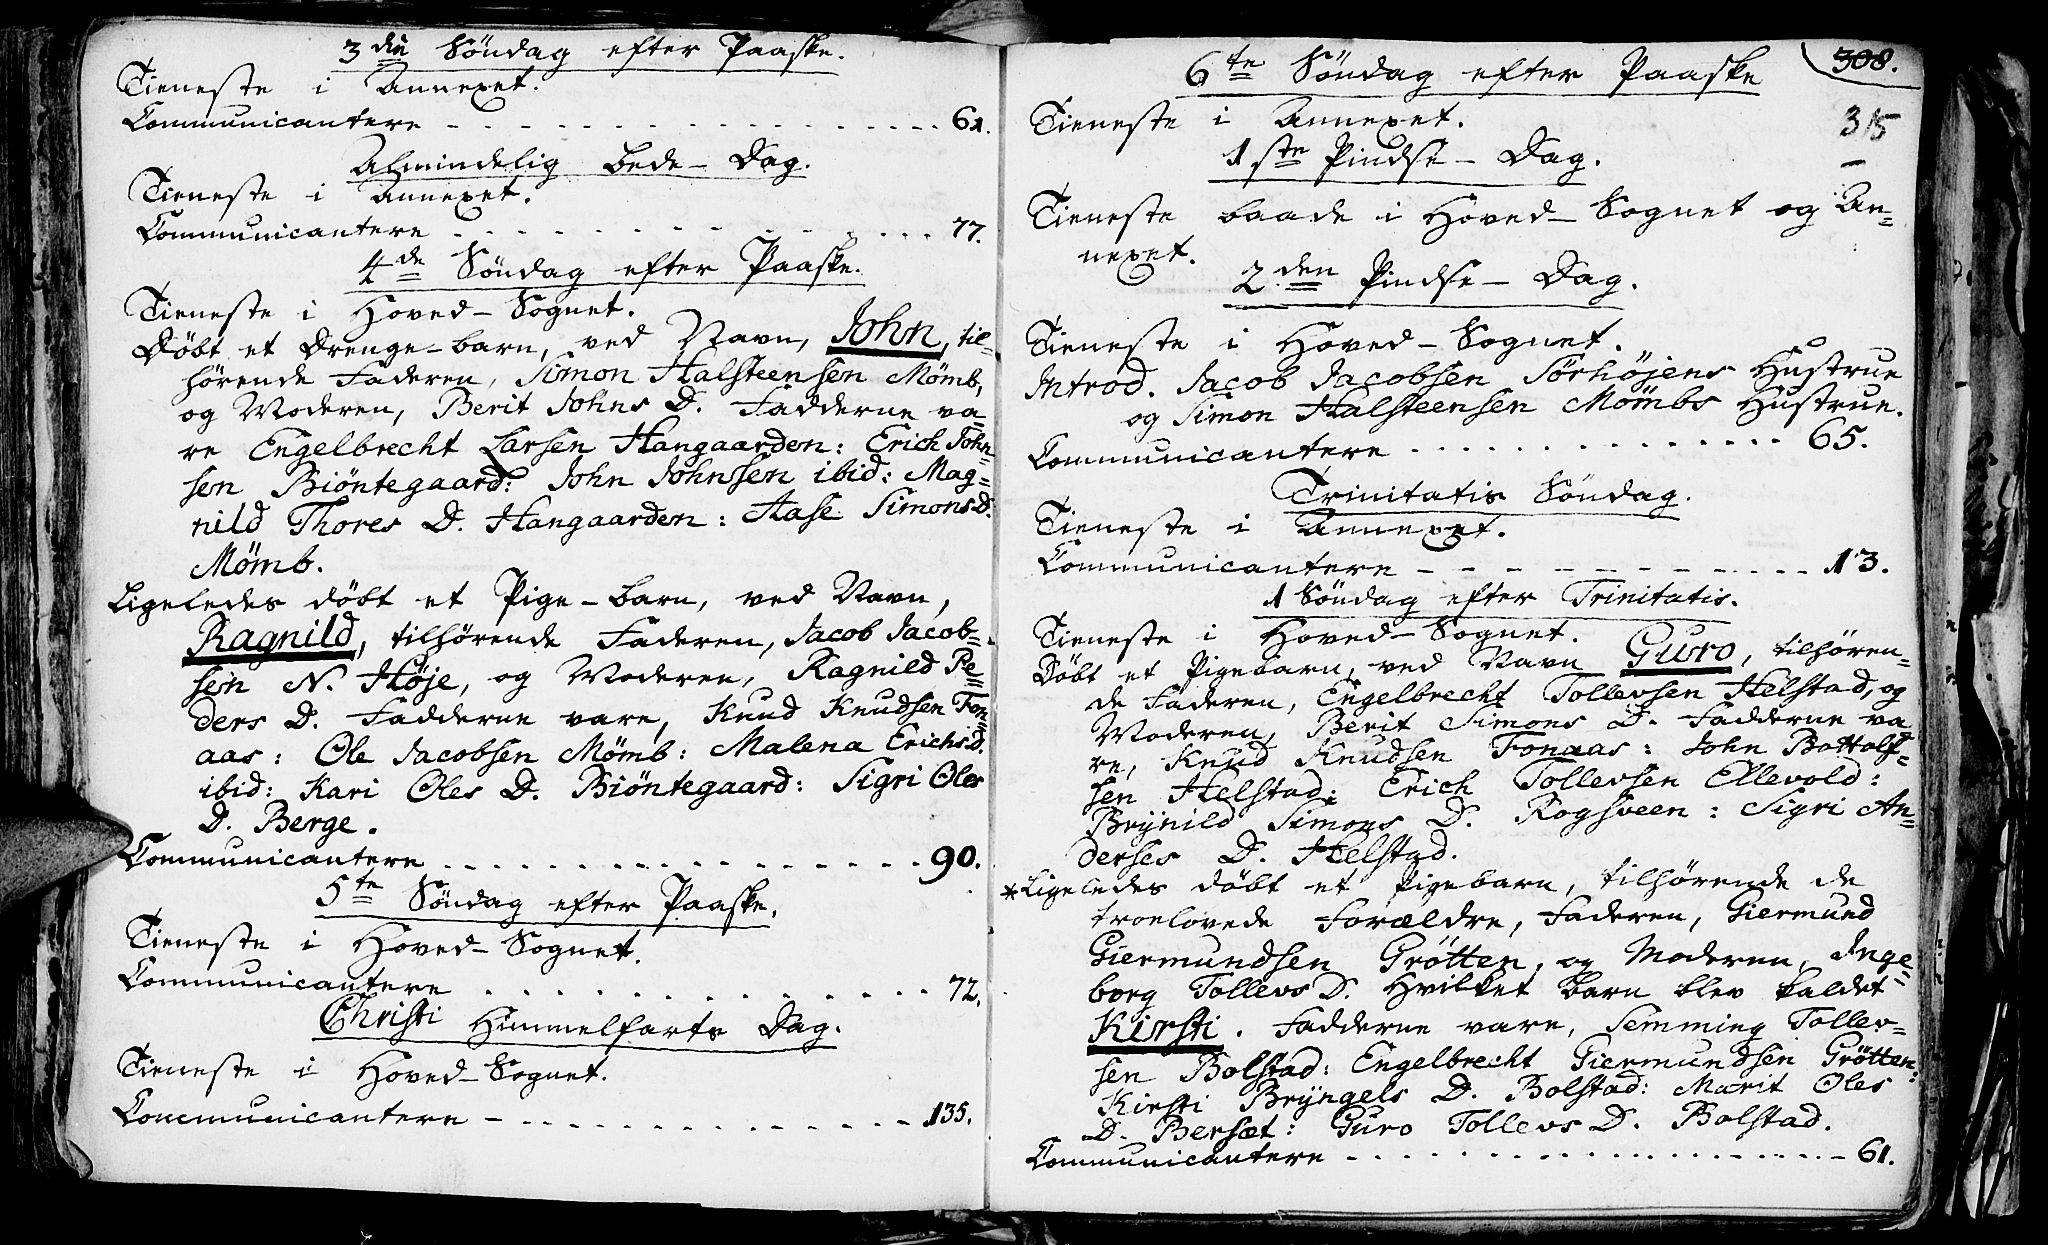 3die Söndag efter Paaske.
Tieneste i Annexet.
Communicantere - - - 61.
Almindelig Bede-Dag.
Tieneste i Annexet.
Communicantere - - - 77.
4de Söndag efter Paaske.
Tieneste i Hoved-Sognet.
Döbt et Drenge-barn, ved Navn, John, til-
hörende Faderen, Simon Halsteensen Mömb,
og Moderen, Berit Johns D. Fadderne va-
re Engelbrecht Larsen Hangaarden: Erich John-
sen Biöntegaard: John Johnssen ibid: Mag-
nild Thores D. Hangaarden: Aase Simons D.
Mömb.
Ligeledes döbt et Pige-barn, ved Navn,
Ragnild, tilhörende Faderen, Jacob Jacob-
sen N. Höje, og Moderen, Ragnild Pe-
ders D. Fadderne vare, Knud Knudsen Fon-
aas: Ole Jacobsen Mömb: Malena Erichs D.
ibid: Kari Oles D. Biöntegaard: Sigri Oles
D. Berge.
Communicantere - - - 90.
5te Söndag efter Paaske.
Tieneste i Hoved-Sognet.
Communicantere - - - 72.
Christi Himmelfarts Dag.
Tieneste i Hoved-Sognet.
Communicantere - - - 135.
308.
315
6te Söndag efter Paaske
Tieneste i Annexet.
1ste Pindse-Dag.
Tieneste baade i Hoved-Sognet og An-
nexet.
2den Pindse-Dag.
Tieneste i Hoved-Sognet.
Introd. Jacob Jacobsen Sörhöjens Hustrue
og Simon Halsteensen Mömbs Hustrue.
Communicantere - - - 65.
Trinitatis Söndag.
Tieneste i Annexet.
Communicantere - - - 13.
1 Söndag efter Trinitatis.
Tieneste i Hoved-Sognet.
Döbt et Pigebarn, ved Navn Guro, tilhören-
de Faderen, Engelbrecht Tollevsen Helstad, og
Moderen, Berit Simons D. Fadderne va-
re, Knud Knudsen Fonaas: John Bottolf-
sen Helstad: Erich Tollevsen Ellevold:
Brÿnild Simons D. Rogsveen: Sigri An-
derses D. Helstad.
* Ligeledes döbt et Pigebarn, tilhörende de
troelovede Forældre, Faderen, Giermund
Giermundsen Grötten, og Moderen, Inge-
borg Tollevs D. Hvilket Barn blev kaldet
Kirsti. Fadderne vare, Semming Tollev-
sen Bolstad: Engelbrecht Giermundsen Grötten:
Kirsti Brÿngels D. Bolstad: Marit Oles
D. Bersæt: Guro Tollevs D. Bolstad.
Communicantere - - - 61.